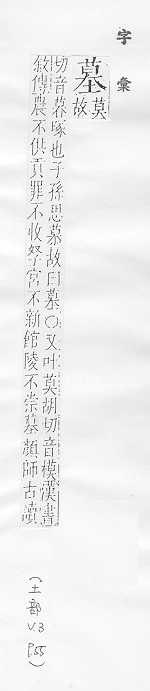 字彙
墓 莫故
切音慕塚也子孫思慕故曰墓○又叶莫胡切音模漢書
敘傳農不供貢罪不收孥宮不新館陵不崇墓顏師古讀
(土部
V.3
P.55)